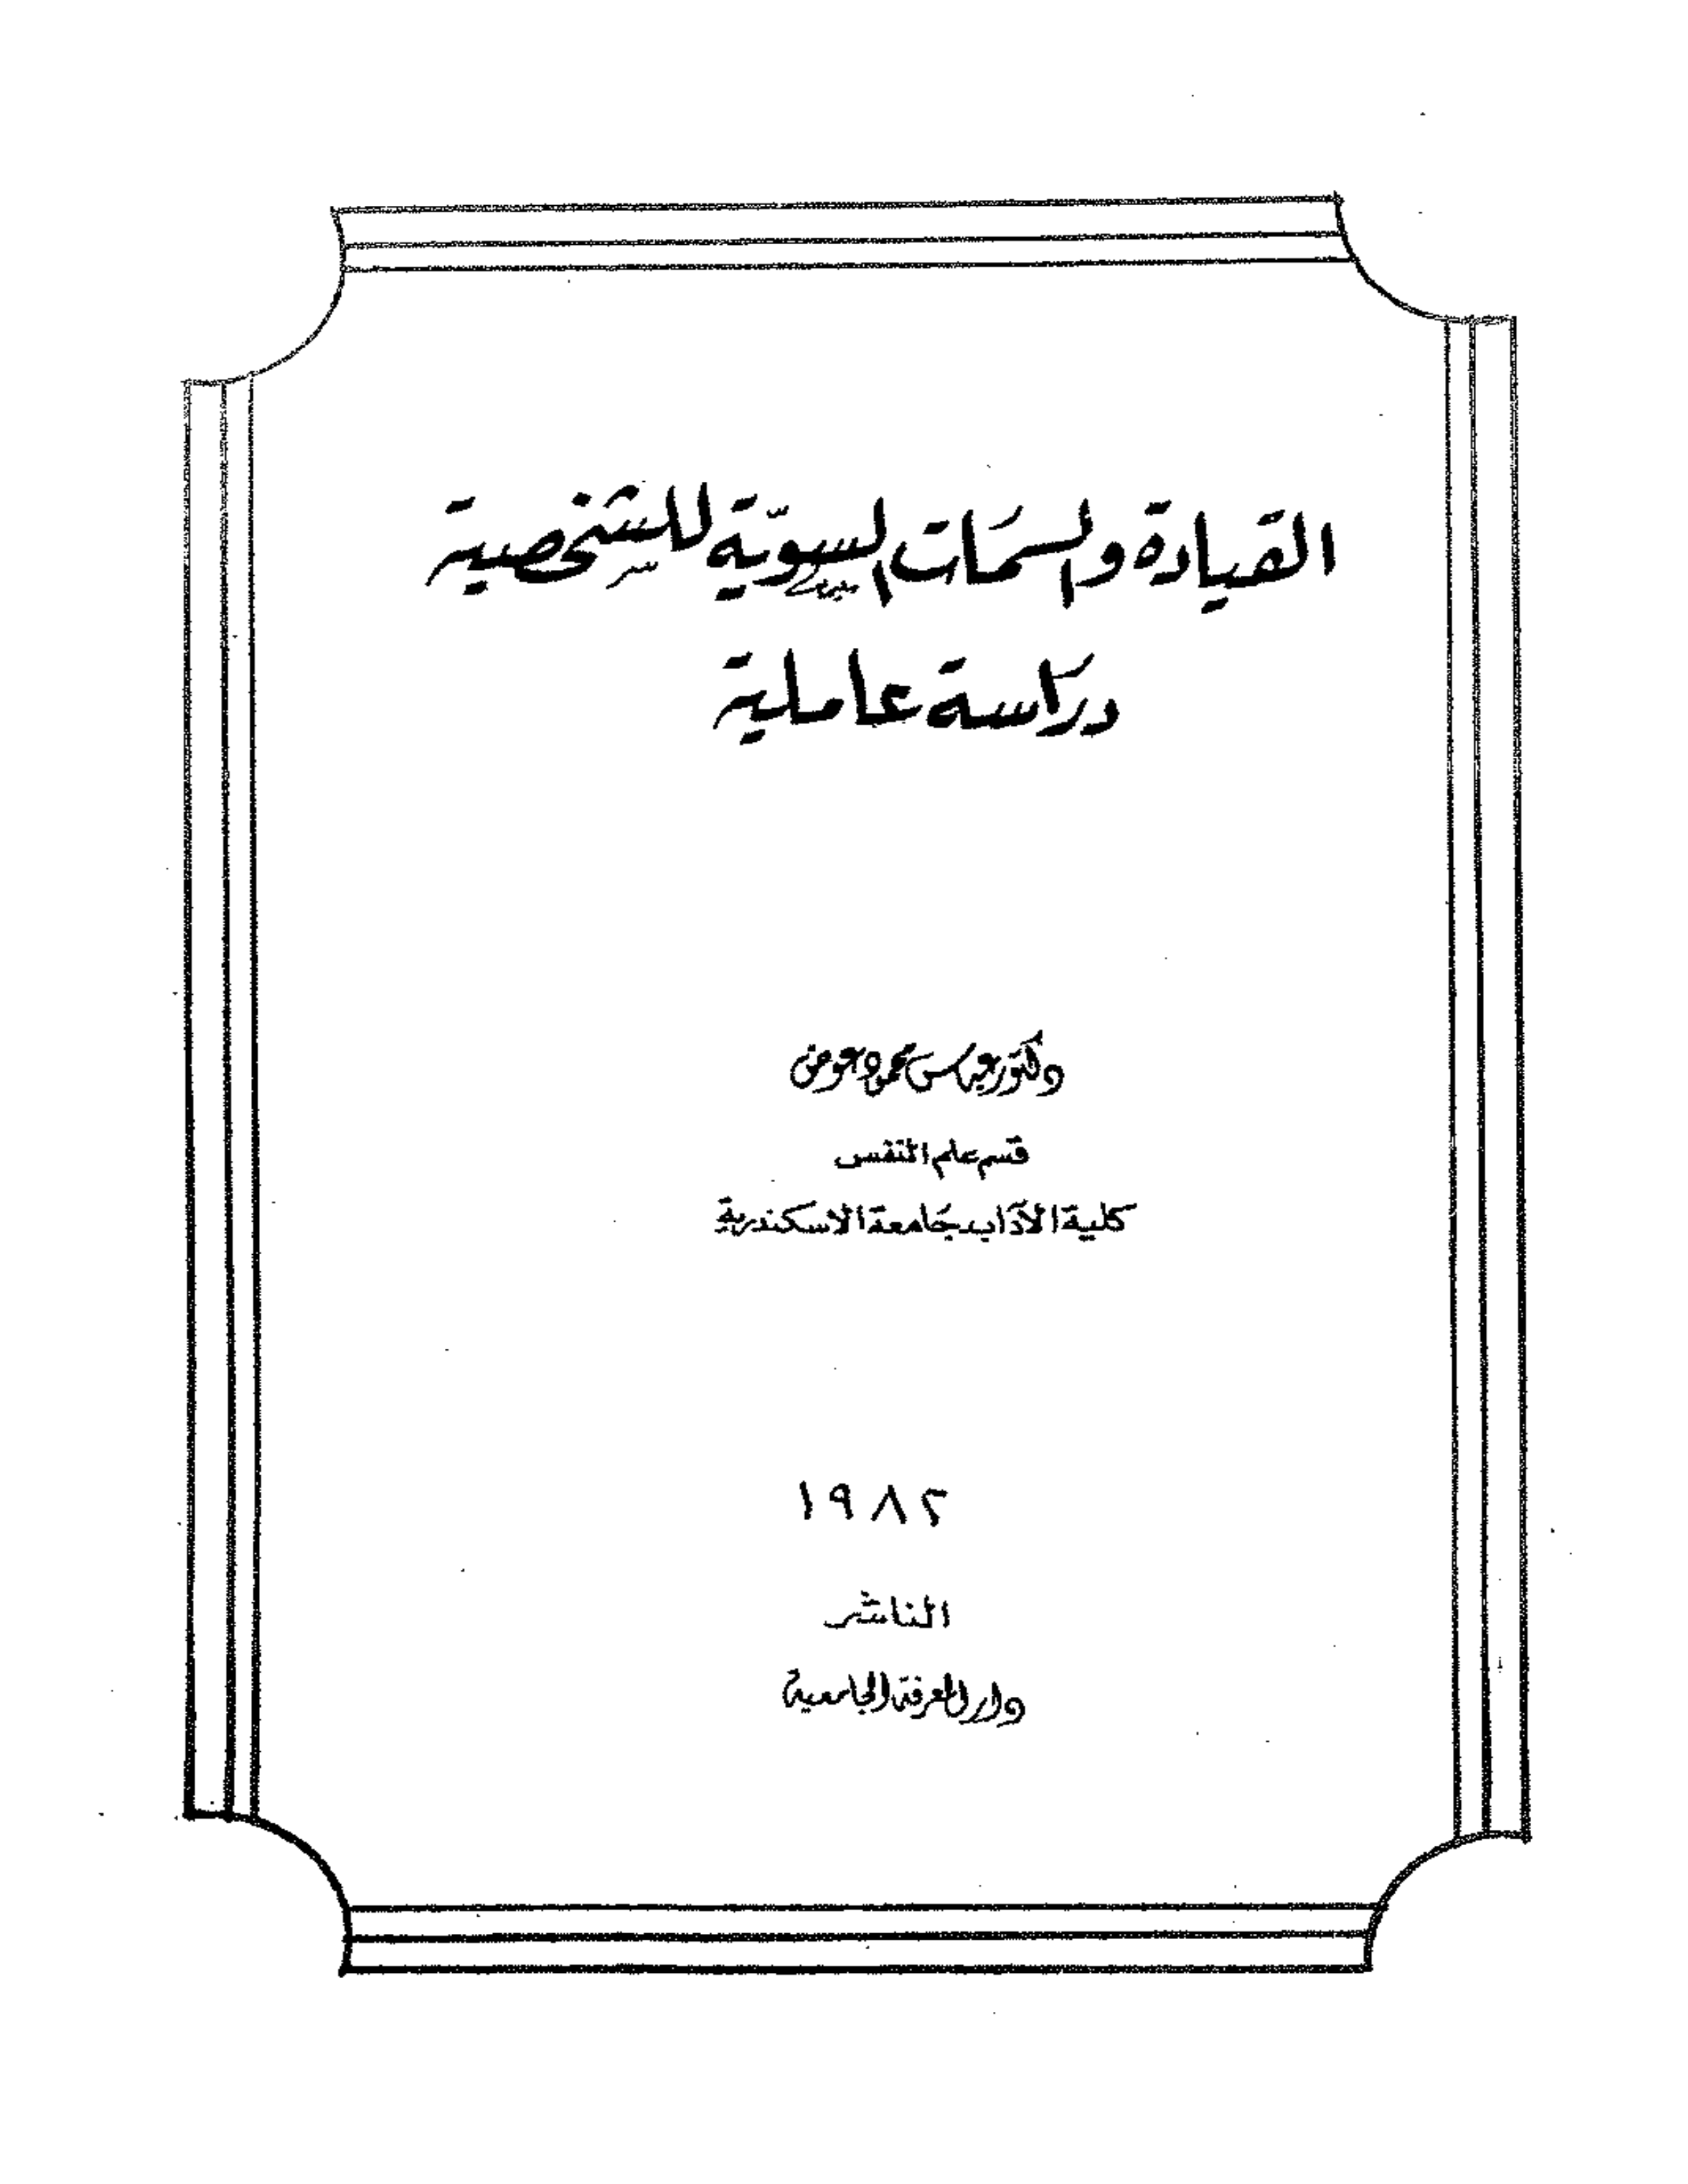 القيادة والسمَات السويّة للشخصية
دراسة عاملية
دكتور عباس محمود عوض
قسم علم النفس
كلية الآداب جَامعة الاسكندرية
١٩٨٢
الناشر
دار المعرفة الجامعية